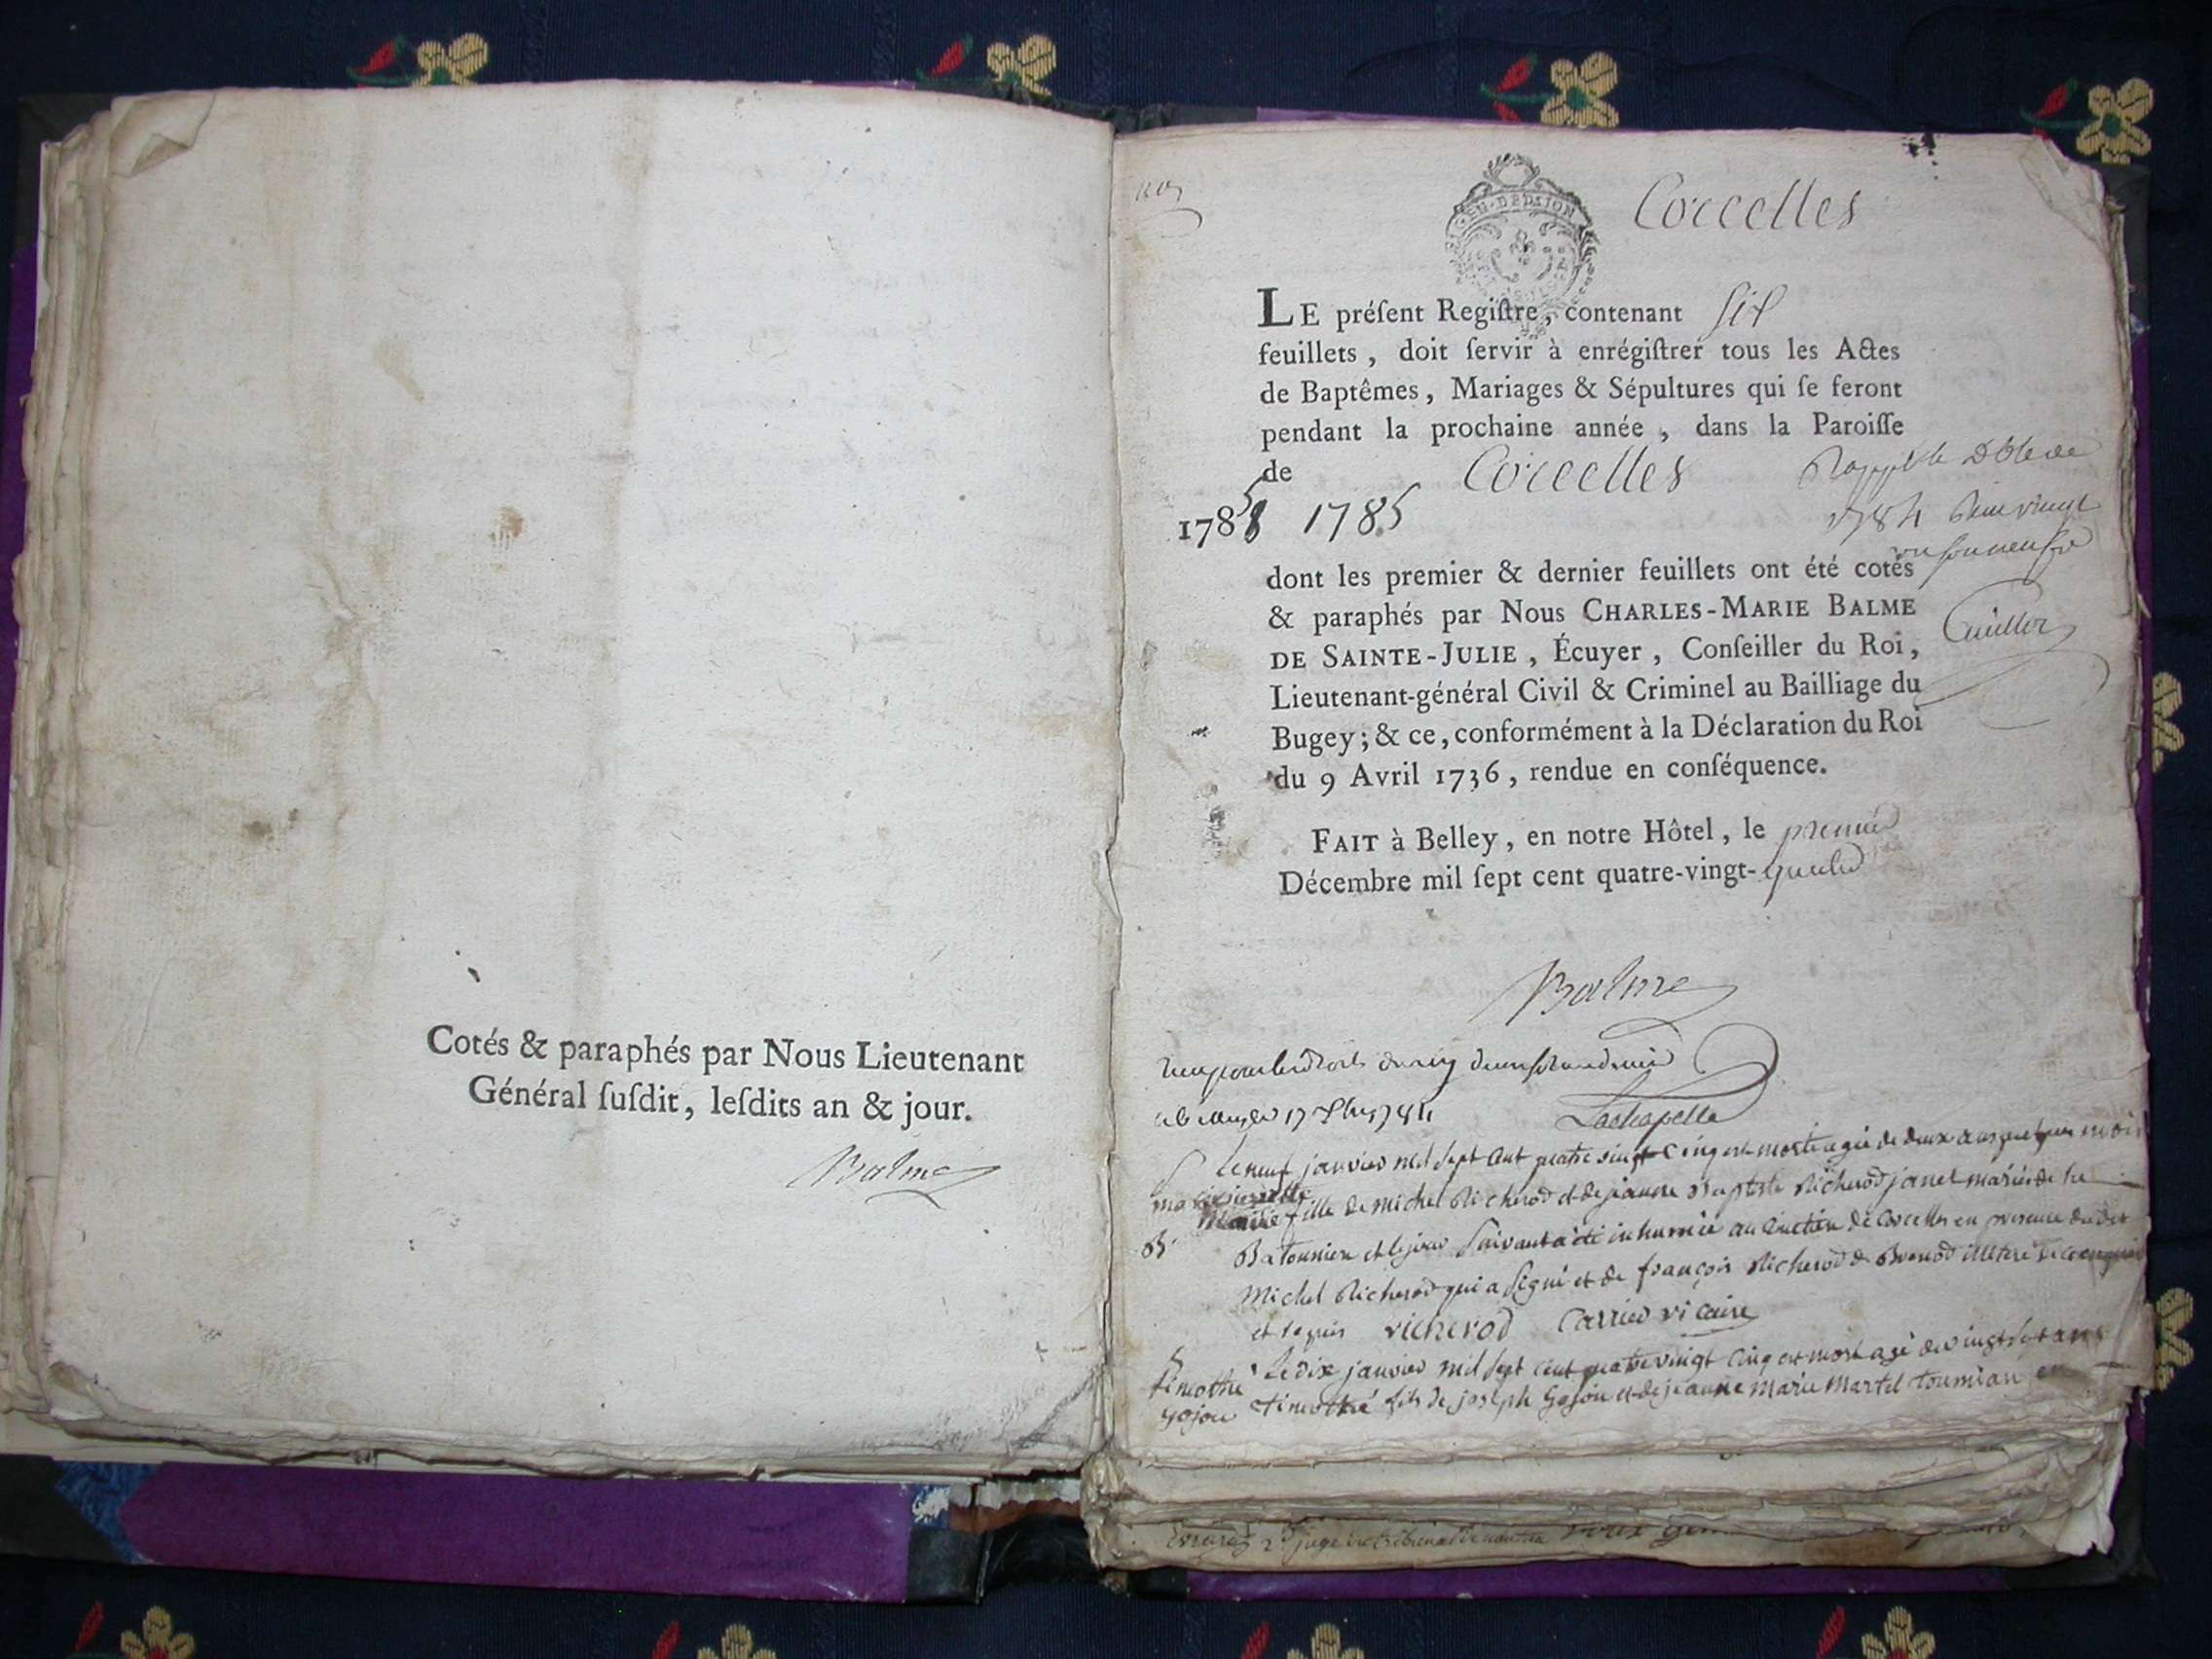 Cotés & paraphés par Nous Lieutenant
Général ſuſdit, leſdits an & jour.
Balme
GEN. DE DIJON
Corcelles
LE préſent Regiſtre, contenant six
feuillets, doit ſervir à enrégiſtrer tous les Actes
de Baptêmes, Mariages & Sépultures qui ſe feront
pendant la prochaine année, dans la Paroiſſe
de Corcelles
1785 1785
1784
dont les premier & dernier feuillets ont été cotés
& paraphés par Nous CHARLES-MARIE BALME
DE SAINTE-JULIE, Écuyer, Conſeiller du Roi,
Lieutenant-général Civil & Criminel au Bailliage du
Bugey; & ce, conformément à la Déclaration du Roi
du 9 Avril 1736, rendue en conſéquence.
FAIT à Belley, en notre Hôtel, le premier
Décembre mil ſept cent quatre-vingt-quatre
Balme
Lachapelle
Le neuf janvier mil sept cent quatre vingt cinq est morte agée de deux ans quelques mois
fille de michel Richerod et de jeanne Baptiste Richerod janet mariés de
et le jour suivant a été inhumée au cimetiere de Corcelles en presence dudit
Michel Richerod qui a signé et de françois Richerod de Brenod illiteré de ce enquis
et requis richerod Carrier vicaire
timothé
gojou
Le dix janvier mil sept cent quatre vingt cinq est mort agé de vingt sept ans
timothé fils de joseph Gojou et de jeanne Marie Martel